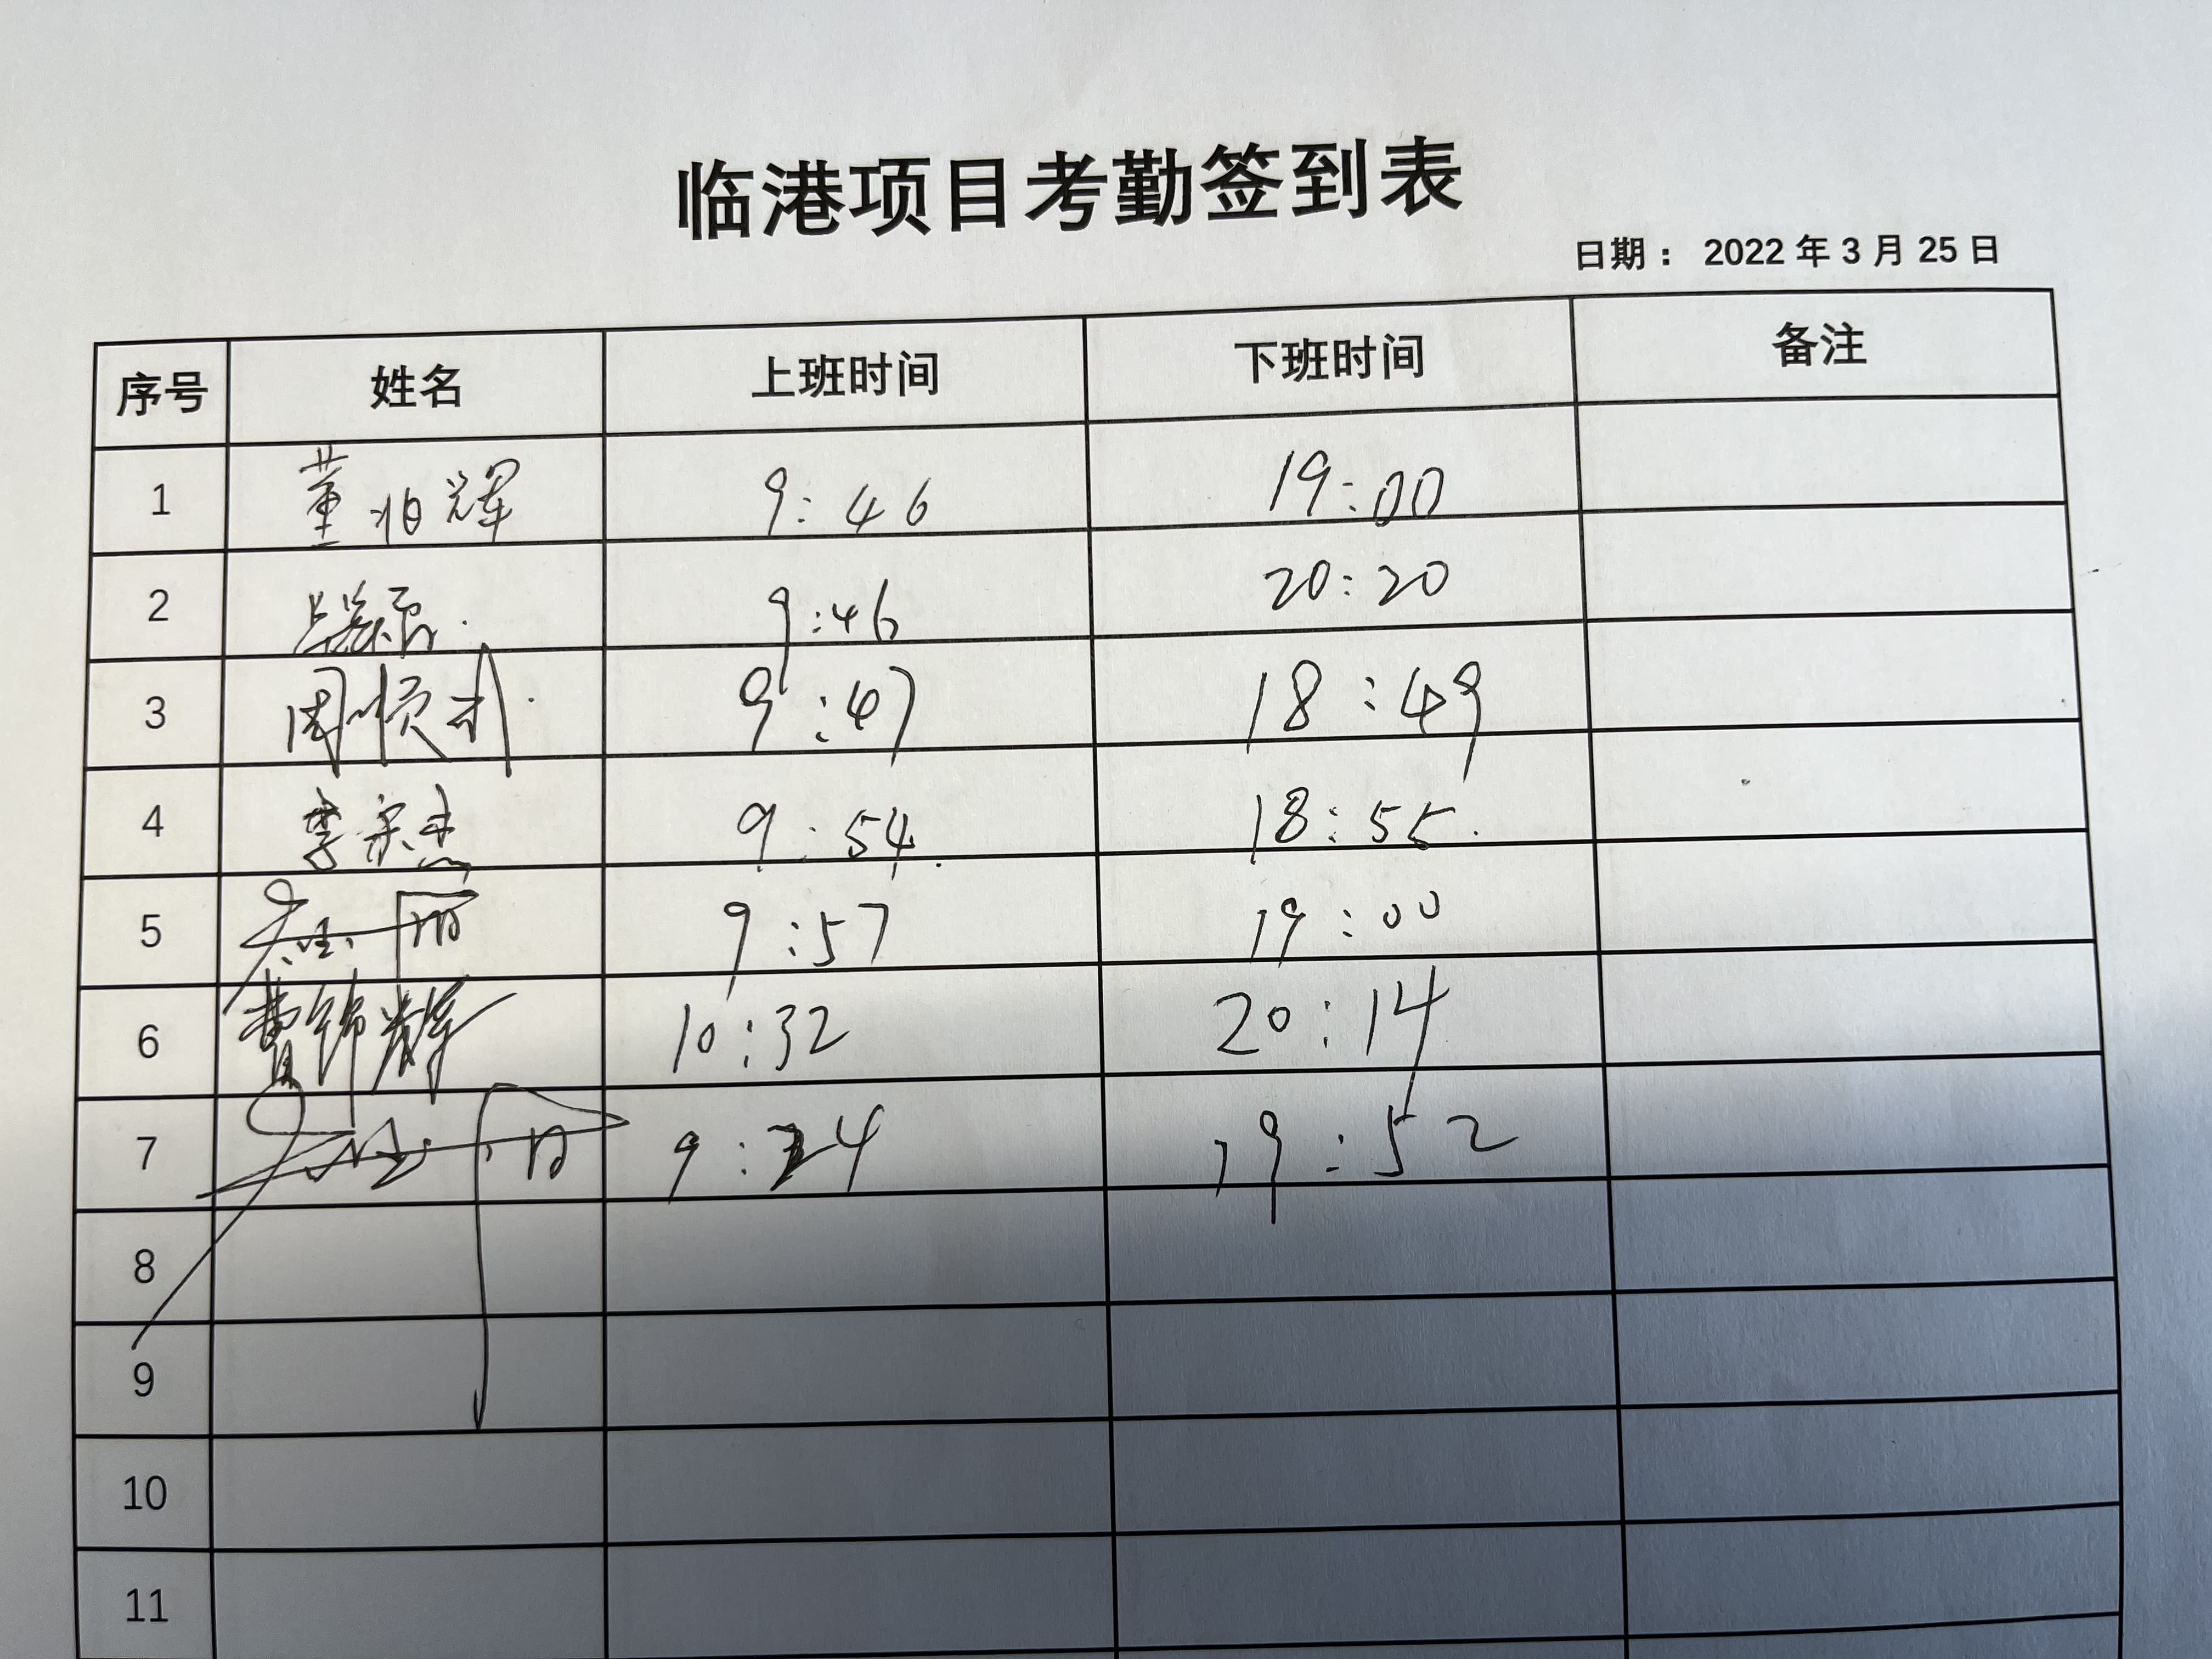 临港项目考勤签到表
日期： 2022 年 3 月 25 日
序号 姓名 上班时间 下班时间 备注
1 董旭辉 9:46 19:00
2 9:46 20:20
3 周顺利 9:47 18:49
4 李宗杰 9:54 18:55
5 9:57 19:00
6 曹锦辉 10:32 20:14
7 9:24 19:52
8
9
10
11